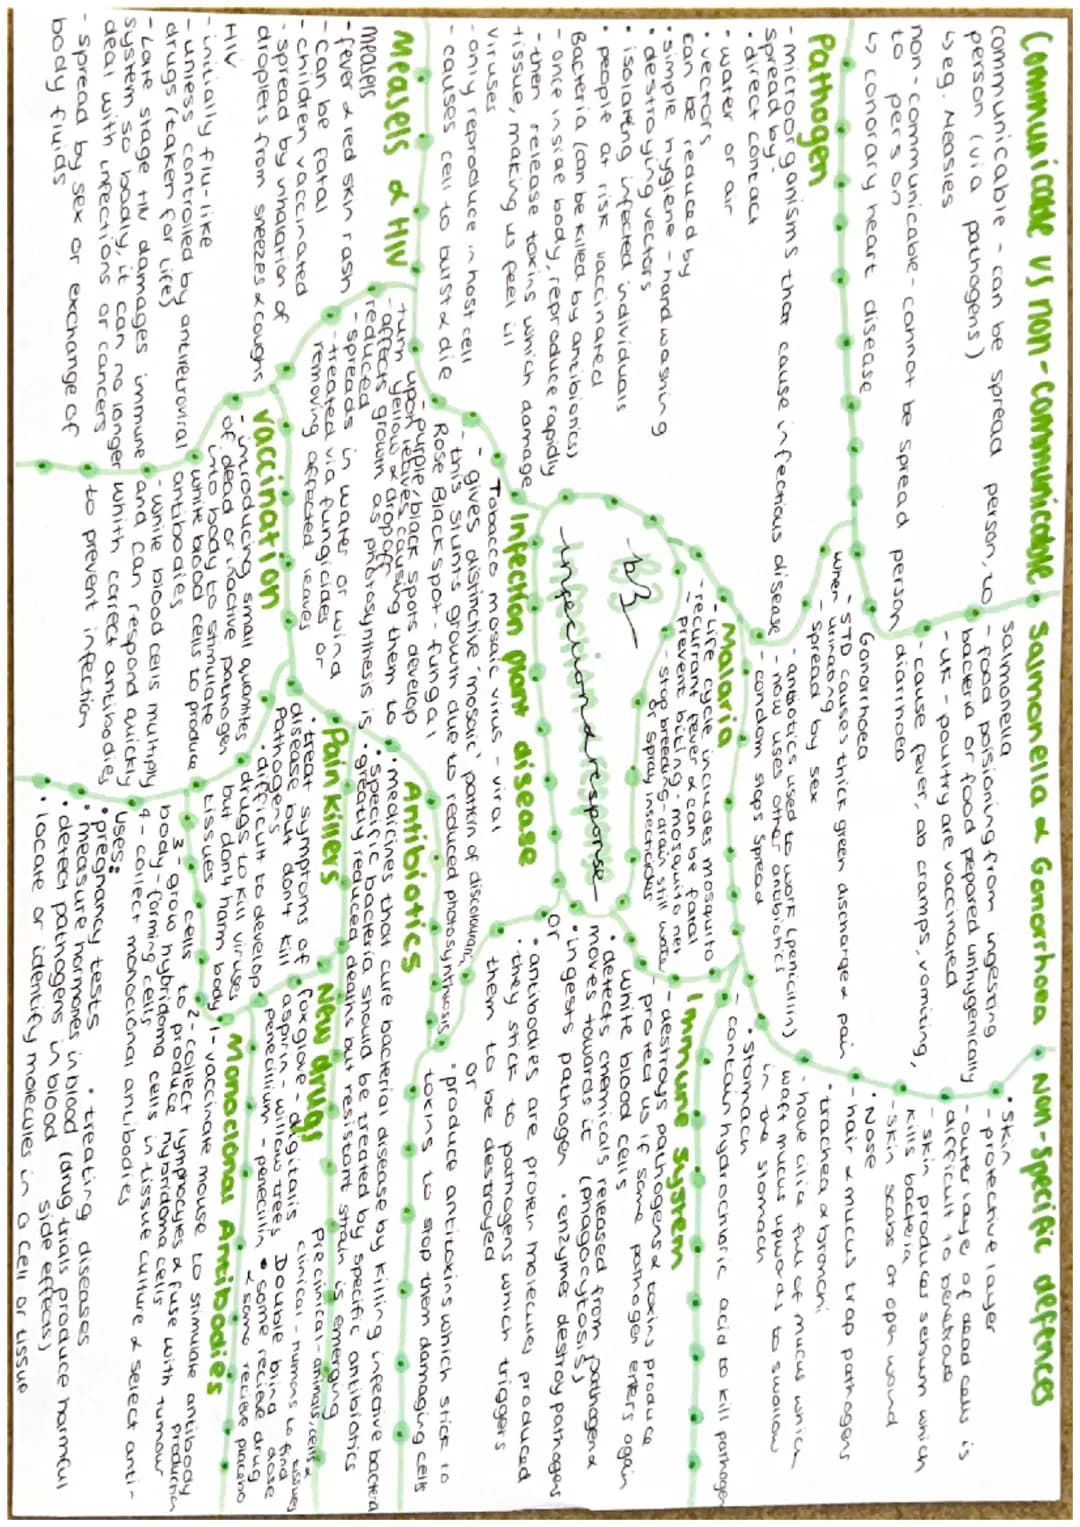 Communicable vs non-communicable
communicable - can be spread person, to
person (via pathogens)
↳ eg. Measles
non-communicable - cannot be spread person
to person
↳ coronary heart disease
Pathogen
- microorganisms that cause infectious disease
spread by-
• direct contact
• water or air
• vectors
can be reduced by
• simple hygiene - hand washing
• destroying vectors
• isolating infected individuals
• people at risk vaccinated
Bacteria (can be killed by antibionics)
- once inside body, reproduce rapidly
- then release toxins which damage
tissue, making us feel ill
viruses
- only reproduce in host cell
- causes cell to burst & die
Measels & HIV
measels
- fever & red skin rash
- can be fatal
- children vaccinated
- spread by inhalation of
droplets from sneezes & coughs
HIV
- initially flu-like
- unless controlled by antiretroviral
drugs (taken for life)
- Late stage HIV damages immune
system so badly, it can no longer
deal with infections or cancers
- spread by sex or exchange of
body fluids
Salmonella & Gonorrhoea
salmonella
- food poisioning from ingesting
bacteria or food pepared unhygenically
- UK - poultry are vaccinated
- cause fever, ab cramps, vomiting,
diarrhoea
Gonorrhoea
- STD causes thick green discharge & pain
when urinating
- spread by sex
- antibiotics used to work (penicillin)
- now uses other antibiotics
- condom stops spread
Malaria
- Life cycle includes mosquito
- recurrant fever & can be fatal
- prevent biting, mosquito net
- stop breeding - drain still water
or spray insecticides
b3
infection and response
Infection plant disease
Tobacco mosaic virus - viral
- gives distinctive 'mosaic' pattern of discolouration
- this stunts growth due to reduced photosynthesis
Rose Black spot - fungal
- purple/black spots develop
upon leaves, causing them to
turn yellow & drop off
- affects growth as photosynthesis is
reduced
- spreads in water or wind
- treated via fungicides or
removing affected leaves
vaccination
- introducing small quantites
of dead or inactive pathogen
into body to stimulate
white blood cells to produce
antibodies
- white blood cells multiply
and can respond quickly
with correct antibodies
to prevent infection
Non-specific defences
• Skin
- protective layer
- outer layer of dead cells is
difficult to penetrate
- skin produces sebum which
kills bacteria
- skin scabs at open wound
• Nose
- hair & mucus trap pathogens
• trachea & bronchi
- have cilia full of mucus which
waft mucus upwards to swallow
in the stomach
• stomach
- contain hydrochloric acid to kill pathogen
Immune System
- destroys pathogens & toxins produce
- protect us if same pathogen enters again
white blood cells
• detects chemicals released from pathogen &
moves towards it (phagocytosis)
• ingests pathogen • enzymes destroy pathogens
or
• antibodies are protein molecules produced
• they stick to pathogens which triggers
them to be destroyed
or
• produce antitoxins which stick to
toxins to stop them damaging cells
Antibiotics
• medicines that cure bacterial disease by killing infective bacteria
• specific bacteria should be treated by specific antibiotics
• greatly reduced deaths but resistant strain is emerging
Painkillers
• treat symptoms of
disease but don't kill
pathogens
• difficult to develop
drugs to kill viruses
but don't harm body
tissues
New drugs
foxglove - digitalis
aspirin - willow trees
penecillium - penecillin
Preclinical - animals, cells & tissues
clinical - humans to find dose
Double blind
• some recieve drug
& some recieve placebo
Monoclonal Antibodies
1 - vaccinate mouse to stimulate antibody production
2 - collect lymphocytes & fuse with tumour
cells to produce hybridoma cells
3 - grow hybridoma cells in tissue culture & select anti-
body-forming cells
4 - collect monoclonal antibodies
uses:
• pregnancy tests
• measure hormones in blood
• detect pathogens in blood
• locate or identify molecules in a cell or tissue
• treating diseases
(drug trials produce harmful
side effects)